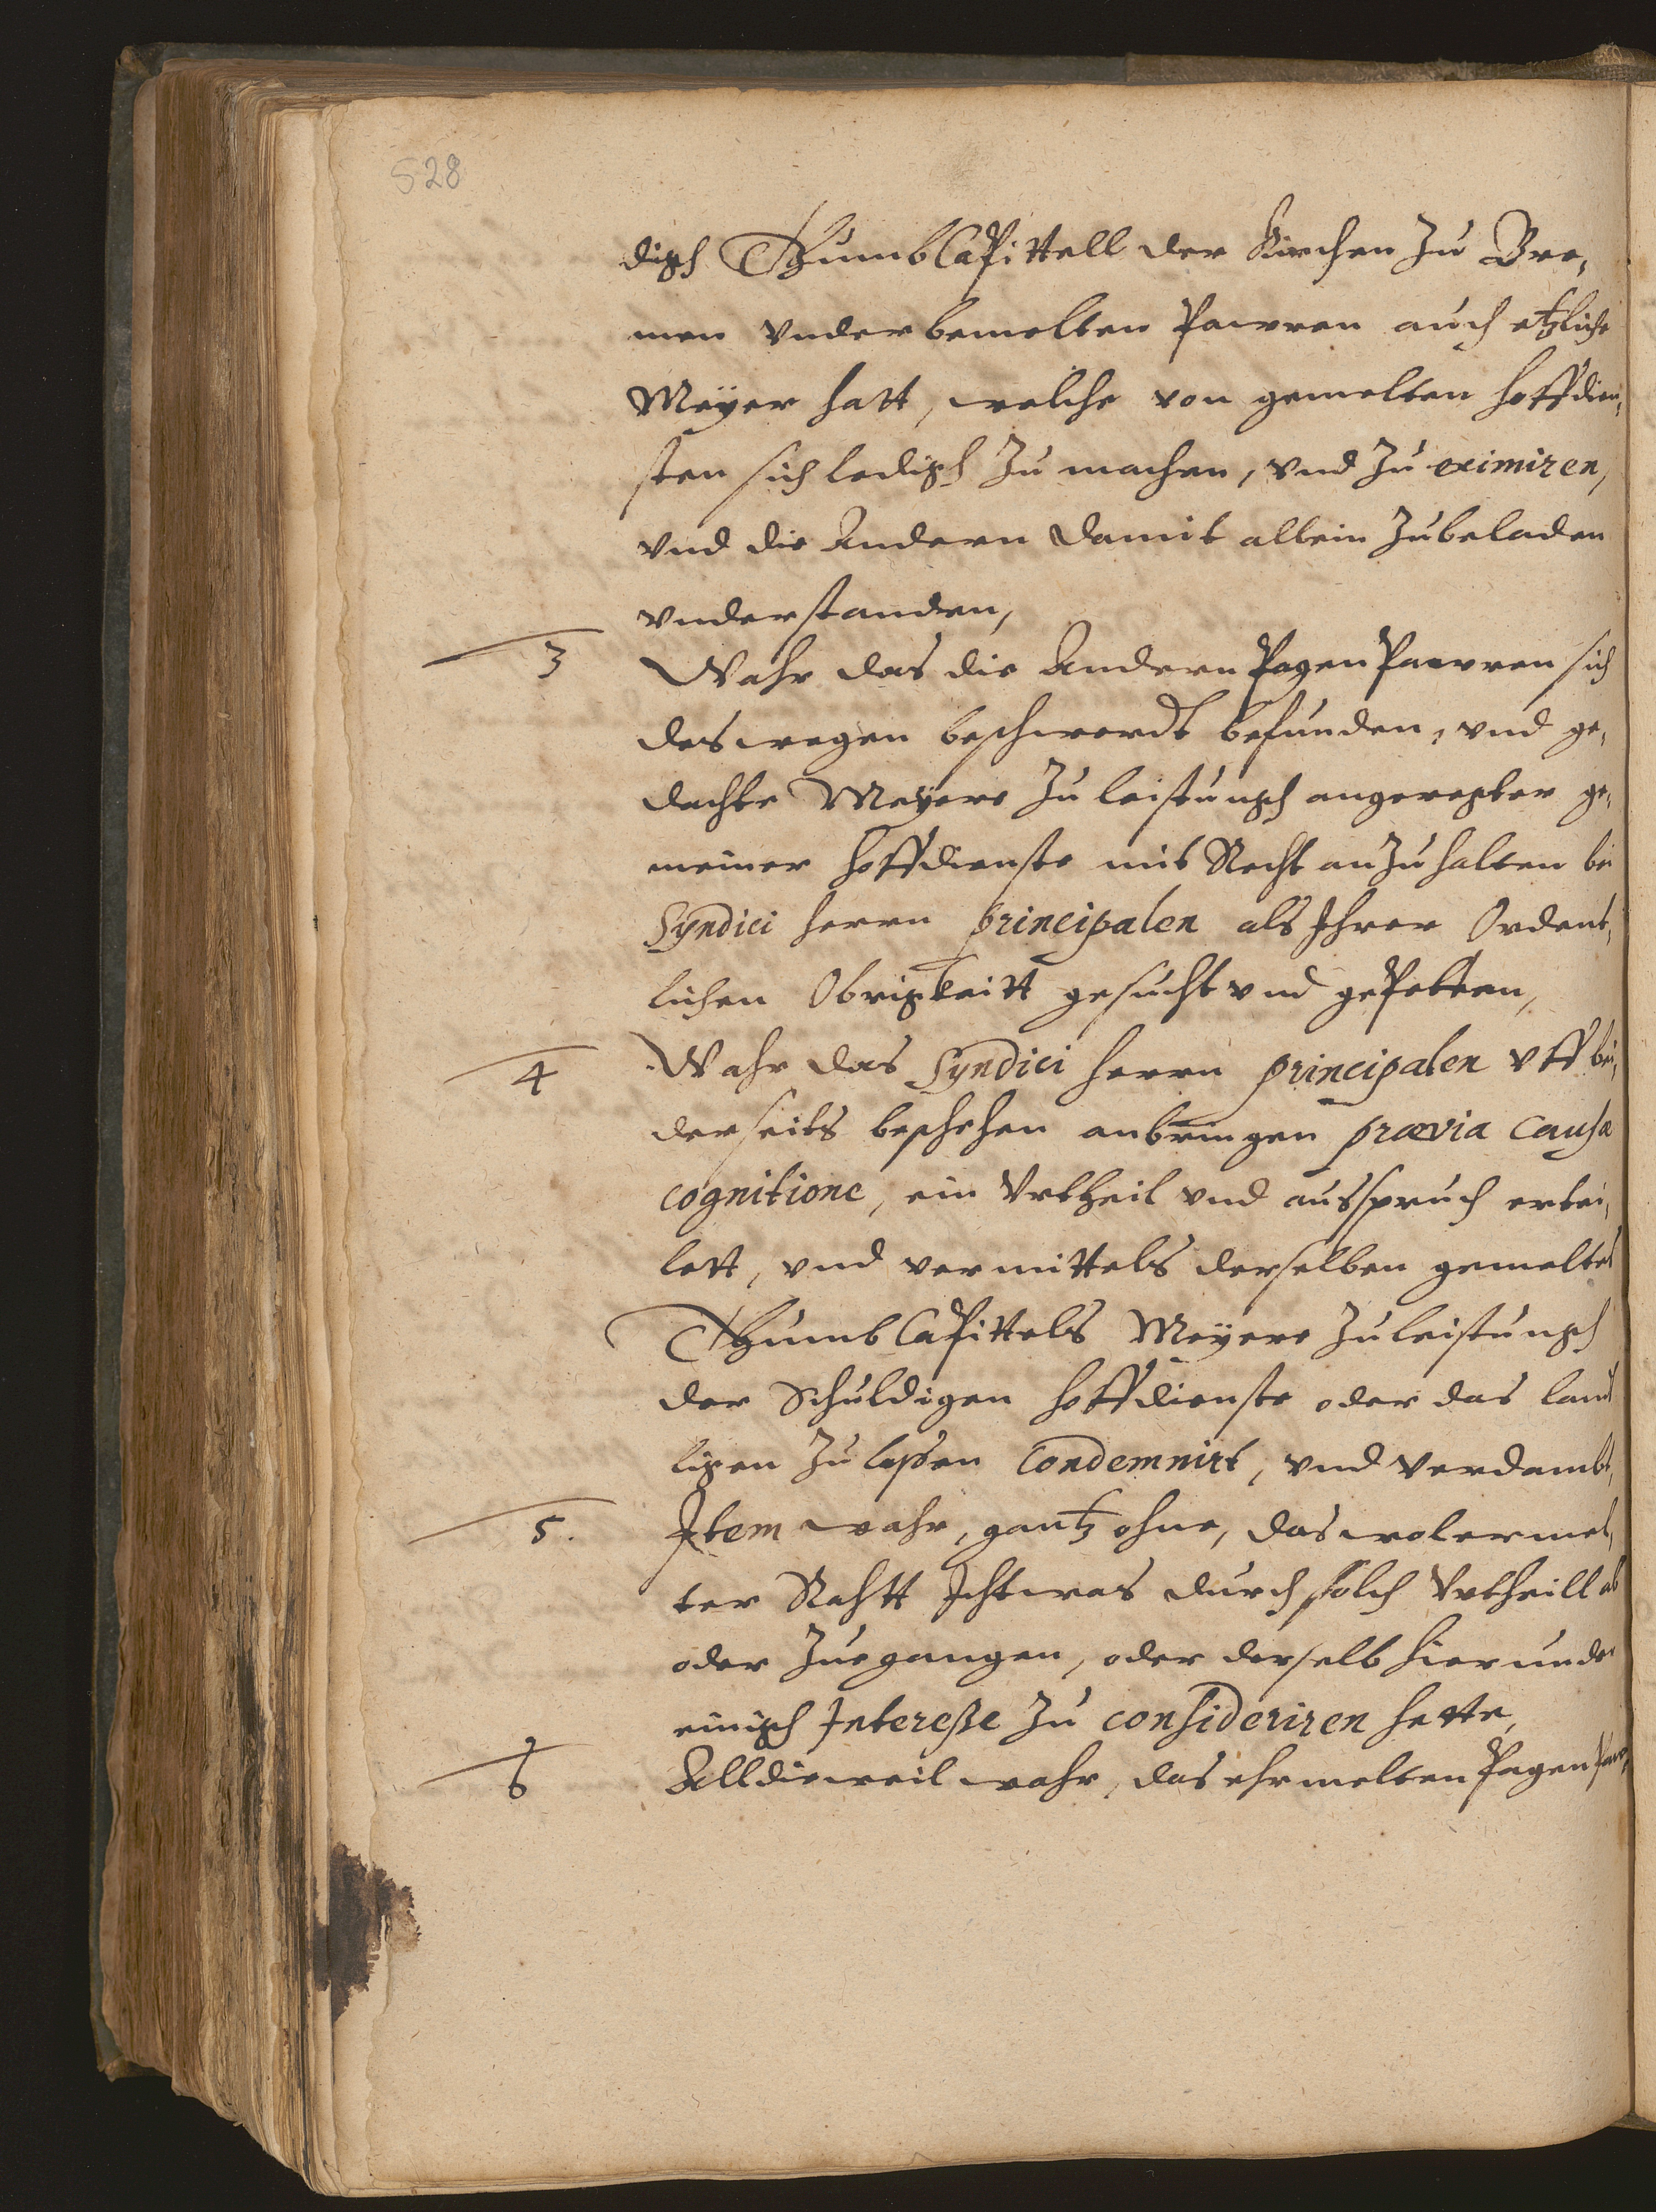 528
digh ThumbCapittell der Kirchen zu Bre,
men vnder bemelten Pawren auch etzliche
Meyer hatt, welche von gemelten hoffdien,
sten sich ledigh zu machen, vnd zu eximiren,
vnd die Andern damit allein zubeladen
vnderstanden,
3 Wahr das die Andern Pagen Pawren sich
des wegen beschwerdt befunden, vnd ge,
dachte Meyere zu leistungh angeregter ge,
meiner hoffdienste mit Recht anzuhalten bei
Syndici herrn principalen als Ihrer Ordent,
lichen Obrigkeitt gesucht vnd gepetten,
4 Wahr das Syndici herrn principalen vff bei,
derseits beschehen anbringen prævia causæ
cognitione, ein Vrtheil vnd ausspruch ertei,
lett, vnd vermittels derselben gemeltes
Thumb Capittels Meyere zu leistungh
der Schuldigen hoffdienste oder das landt
ligen zu lassen Condemnirt, vnd verdambt,
5. Item wahr, gantz ohne, das wolermel,
ter Rahtt Ichtwas durch solch Vrtheill ab
oder zuegangen, oder derselb hierunder
einigh Interesse zu consideriren hette,
6 Alldieweil wahr, das ehrmelten Pagen Paw,